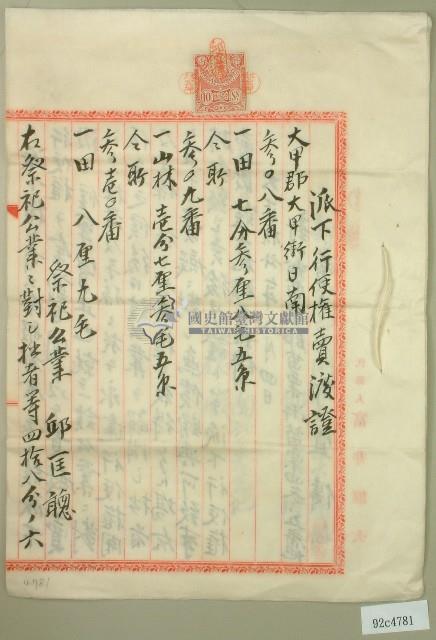 派下行使權賣渡證
大甲郡大甲街日南
參〇八番
一田 七分參厘 毛五糸
仝所
參〇九番
一山林 壱分七厘 毛五糸
仝所
參壱〇番
一田 八厘九毛
祭祀公業 邱匡聰
右祭祀公業ニ對シ拙者等四拾八分ノ六
國史館臺灣文獻館
TAIWAN HISTORICA
4781
92c4781